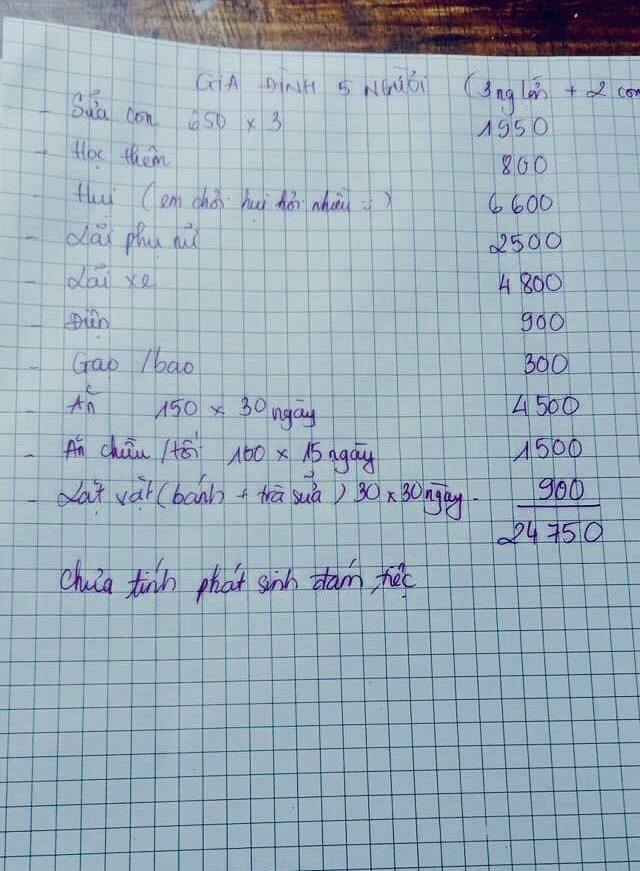 GIA ĐÌNH 5 NGƯỜI (3 ng lớn + 2 con
- Sữa con 650 x 3 1950
- Học thêm 800
- Hụi (em chơi hụi hơi nhiều :) 6 600
- Lãi phụ nữ 2500
- Lãi xe 4 800
- Điện 900
- Gạo /bao 300
- Ăn 150 x 30 ngày 4 500
- Ăn chiều /tối 100 x 15 ngày 1500
- Lặt vặt (bánh + trà sữa) 30 x 30 ngày. 900
24 750
Chưa tính phát sinh đám tiệc